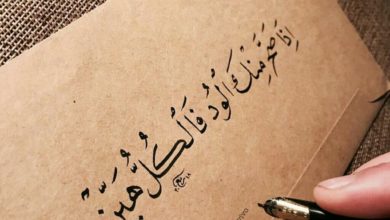 إِذَا صَحَّ مِنْكَ الْوُدُّ فَالْكُلُّ هَيِّنٌ